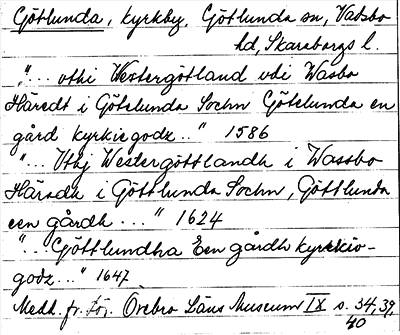 Götlunda, kyrkby, Götlunda sn, Vadsbo
hd, Skaraborgs l.
"... vthi Westergötland vdi Wasbo
Häredt i Götelunda Sochn Götelunda en
gård kyrkiegodz .." 1586
"... Vthj Westergöttlandh i Wassbo
Häradh i Göttlunda Sochn, Göttlunda
een gårdh ..." 1624
"... Göttlundha Een gårdh kyrckio-
godz ..." 1647
Medd. fr. för. Örebro Läns Museum IX s. 34, 39,
40